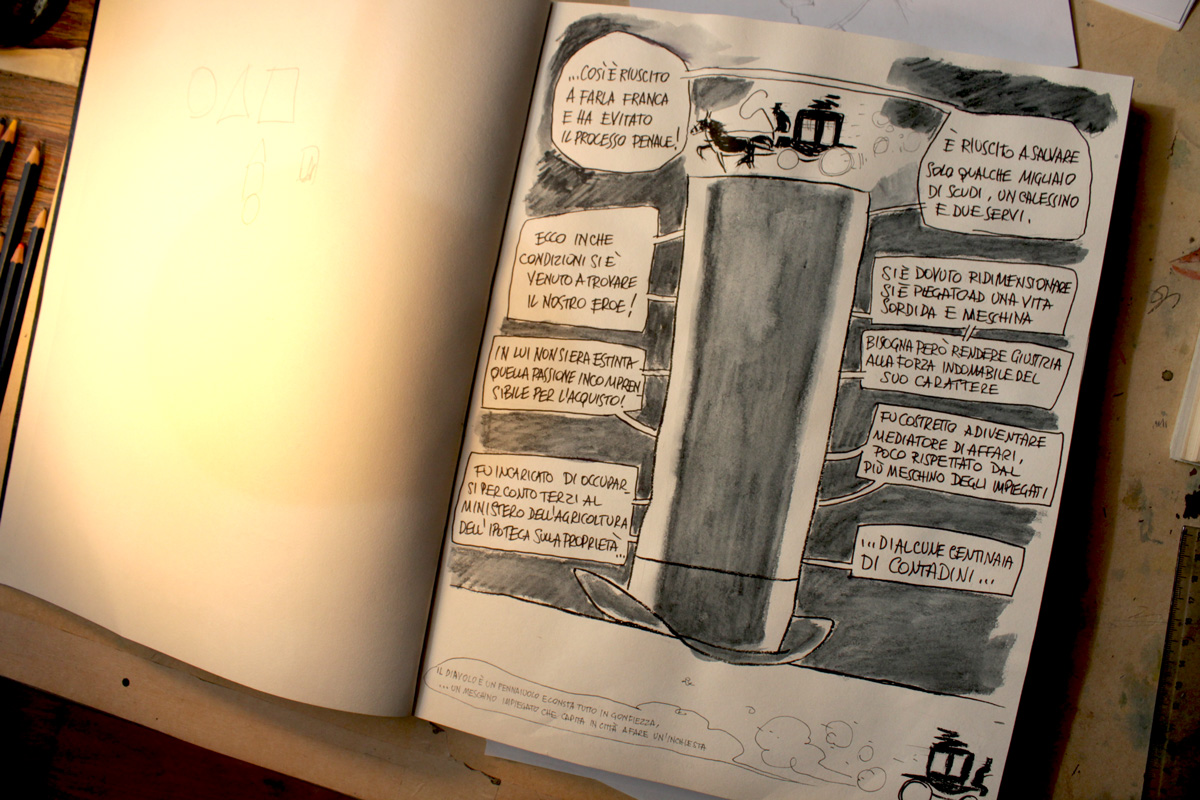 ...COSÌ È RIUSCITO
A FARLA FRANCA
E HA EVITATO
IL PROCESSO PENALE!
È RIUSCITO A SALVARE
SOLO QUALCHE MIGLIAIO
DI SCUDI, UN CALESSINO
E DUE SERVI.
ECCO IN CHE
CONDIZIONI SI È
VENUTO A TROVARE
IL NOSTRO EROE!
SI È DOVUTO RIDIMENSIONARE
SI È PIEGATO AD UNA VITA
SORDIDA E MESCHINA
BISOGNA PERÒ RENDERE GIUSTIZIA
ALLA FORZA INDOMABILE DEL
SUO CARATTERE
IN LUI NON SI ERA ESTINTA
QUELLA PASSIONE INCOMPREN
SIBILE PER L'ACQUISTO!
FU COSTRETTO A DIVENTARE
MEDIATORE DI AFFARI,
POCO RISPETTATO DAL
PIÙ MESCHINO DEGLI IMPIEGATI
FU INCARICATO DI OCCUPAR-
SI PER CONTO TERZI AL
MINISTERO DELL'AGRICOLTURA
DELL'IPOTECA SULLA PROPRIETÀ...
...DI ALCUNE CENTINAIA
DI CONTADINI...
IL DIAVOLO È UN PENNAIUOLO E CONSTA TUTTO IN GONFIEZZA,
...UN MESCHINO IMPIEGATO CHE CAPITA IN CITTÀ A FARE UN'INCHIESTA